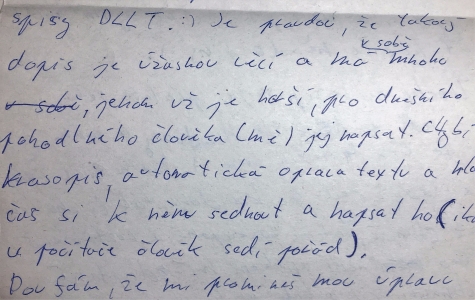 spisy DLLT. :) Je pravdou, že takový
dopis je úžasnou věcí a má v sobě mnoho
v sobě, jenom už je horší, pro dnešního
pohodlného člověka (mě) jej napsat. Chybí
krasopis, automatická oprava textu a hla
čas si k němu sednout a napsat ho (i k
u počítače člověk sedí pořád).
Doufám, že mi promineš mou úpravu